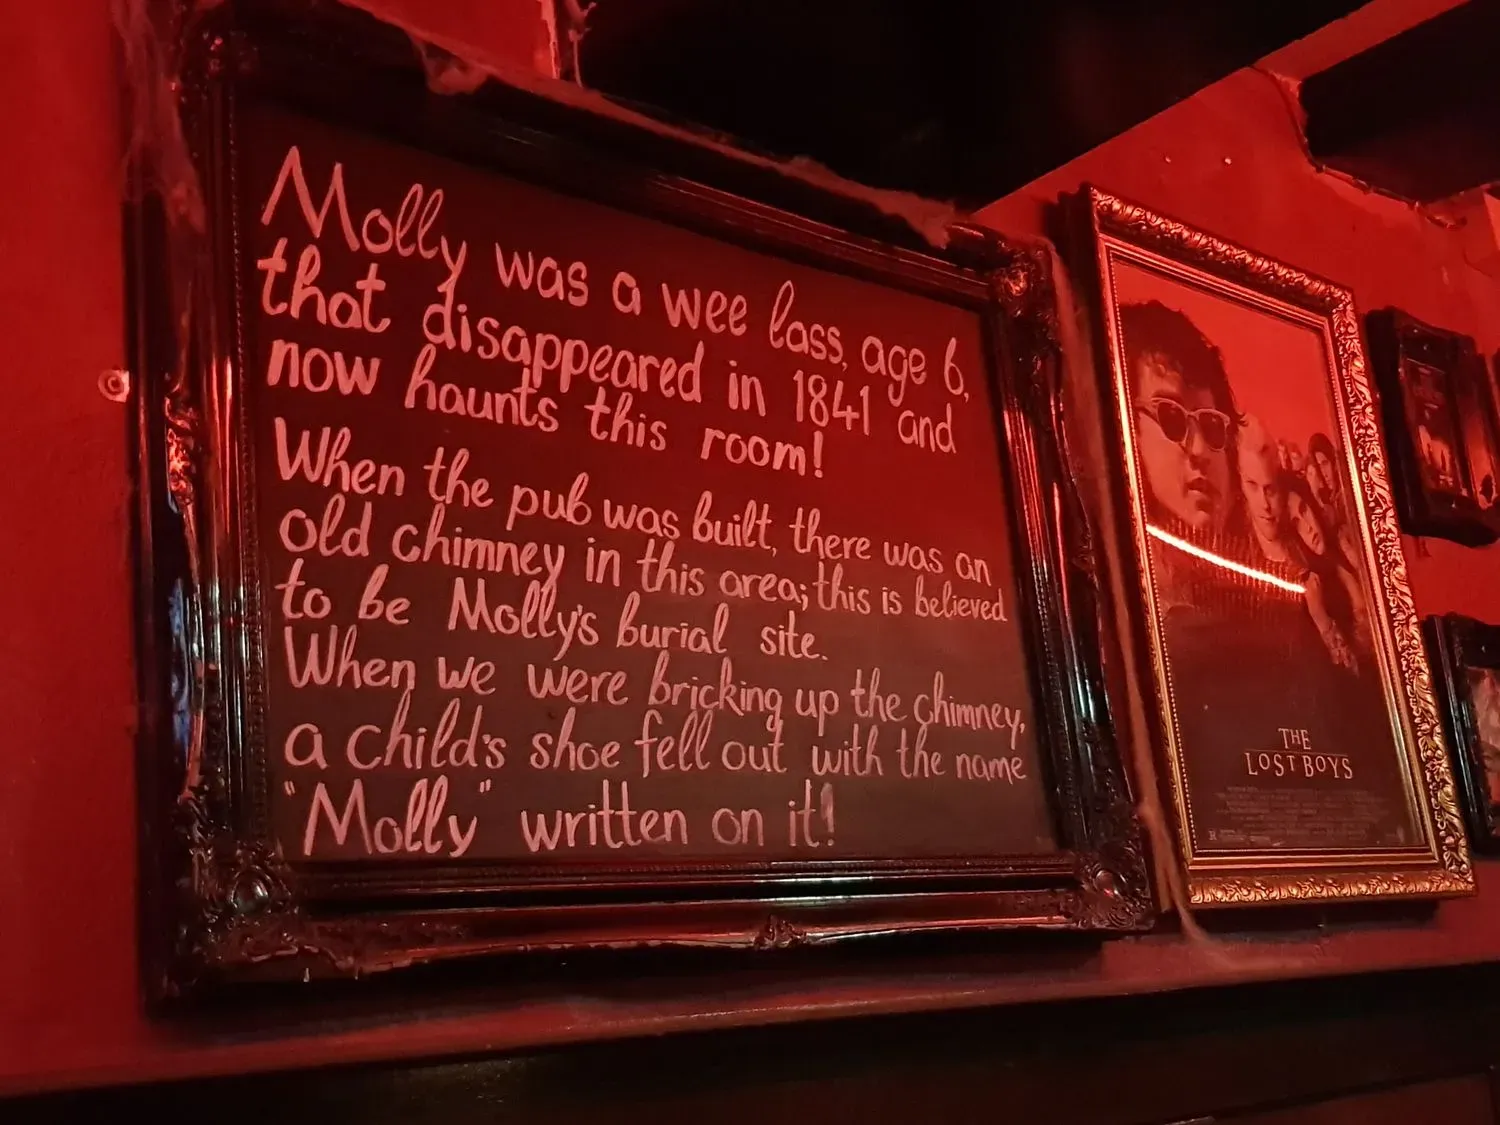 Molly was a wee lass, age 6,
that disappeared in 1841 and
now haunts this room!
When the pub was built, there was an
old chimney in this area; this is believed
to be Molly's burial site.
When we were bricking up the chimney,
a child's shoe fell out with the name
"Molly" written on it!
THE
LOST BOYS